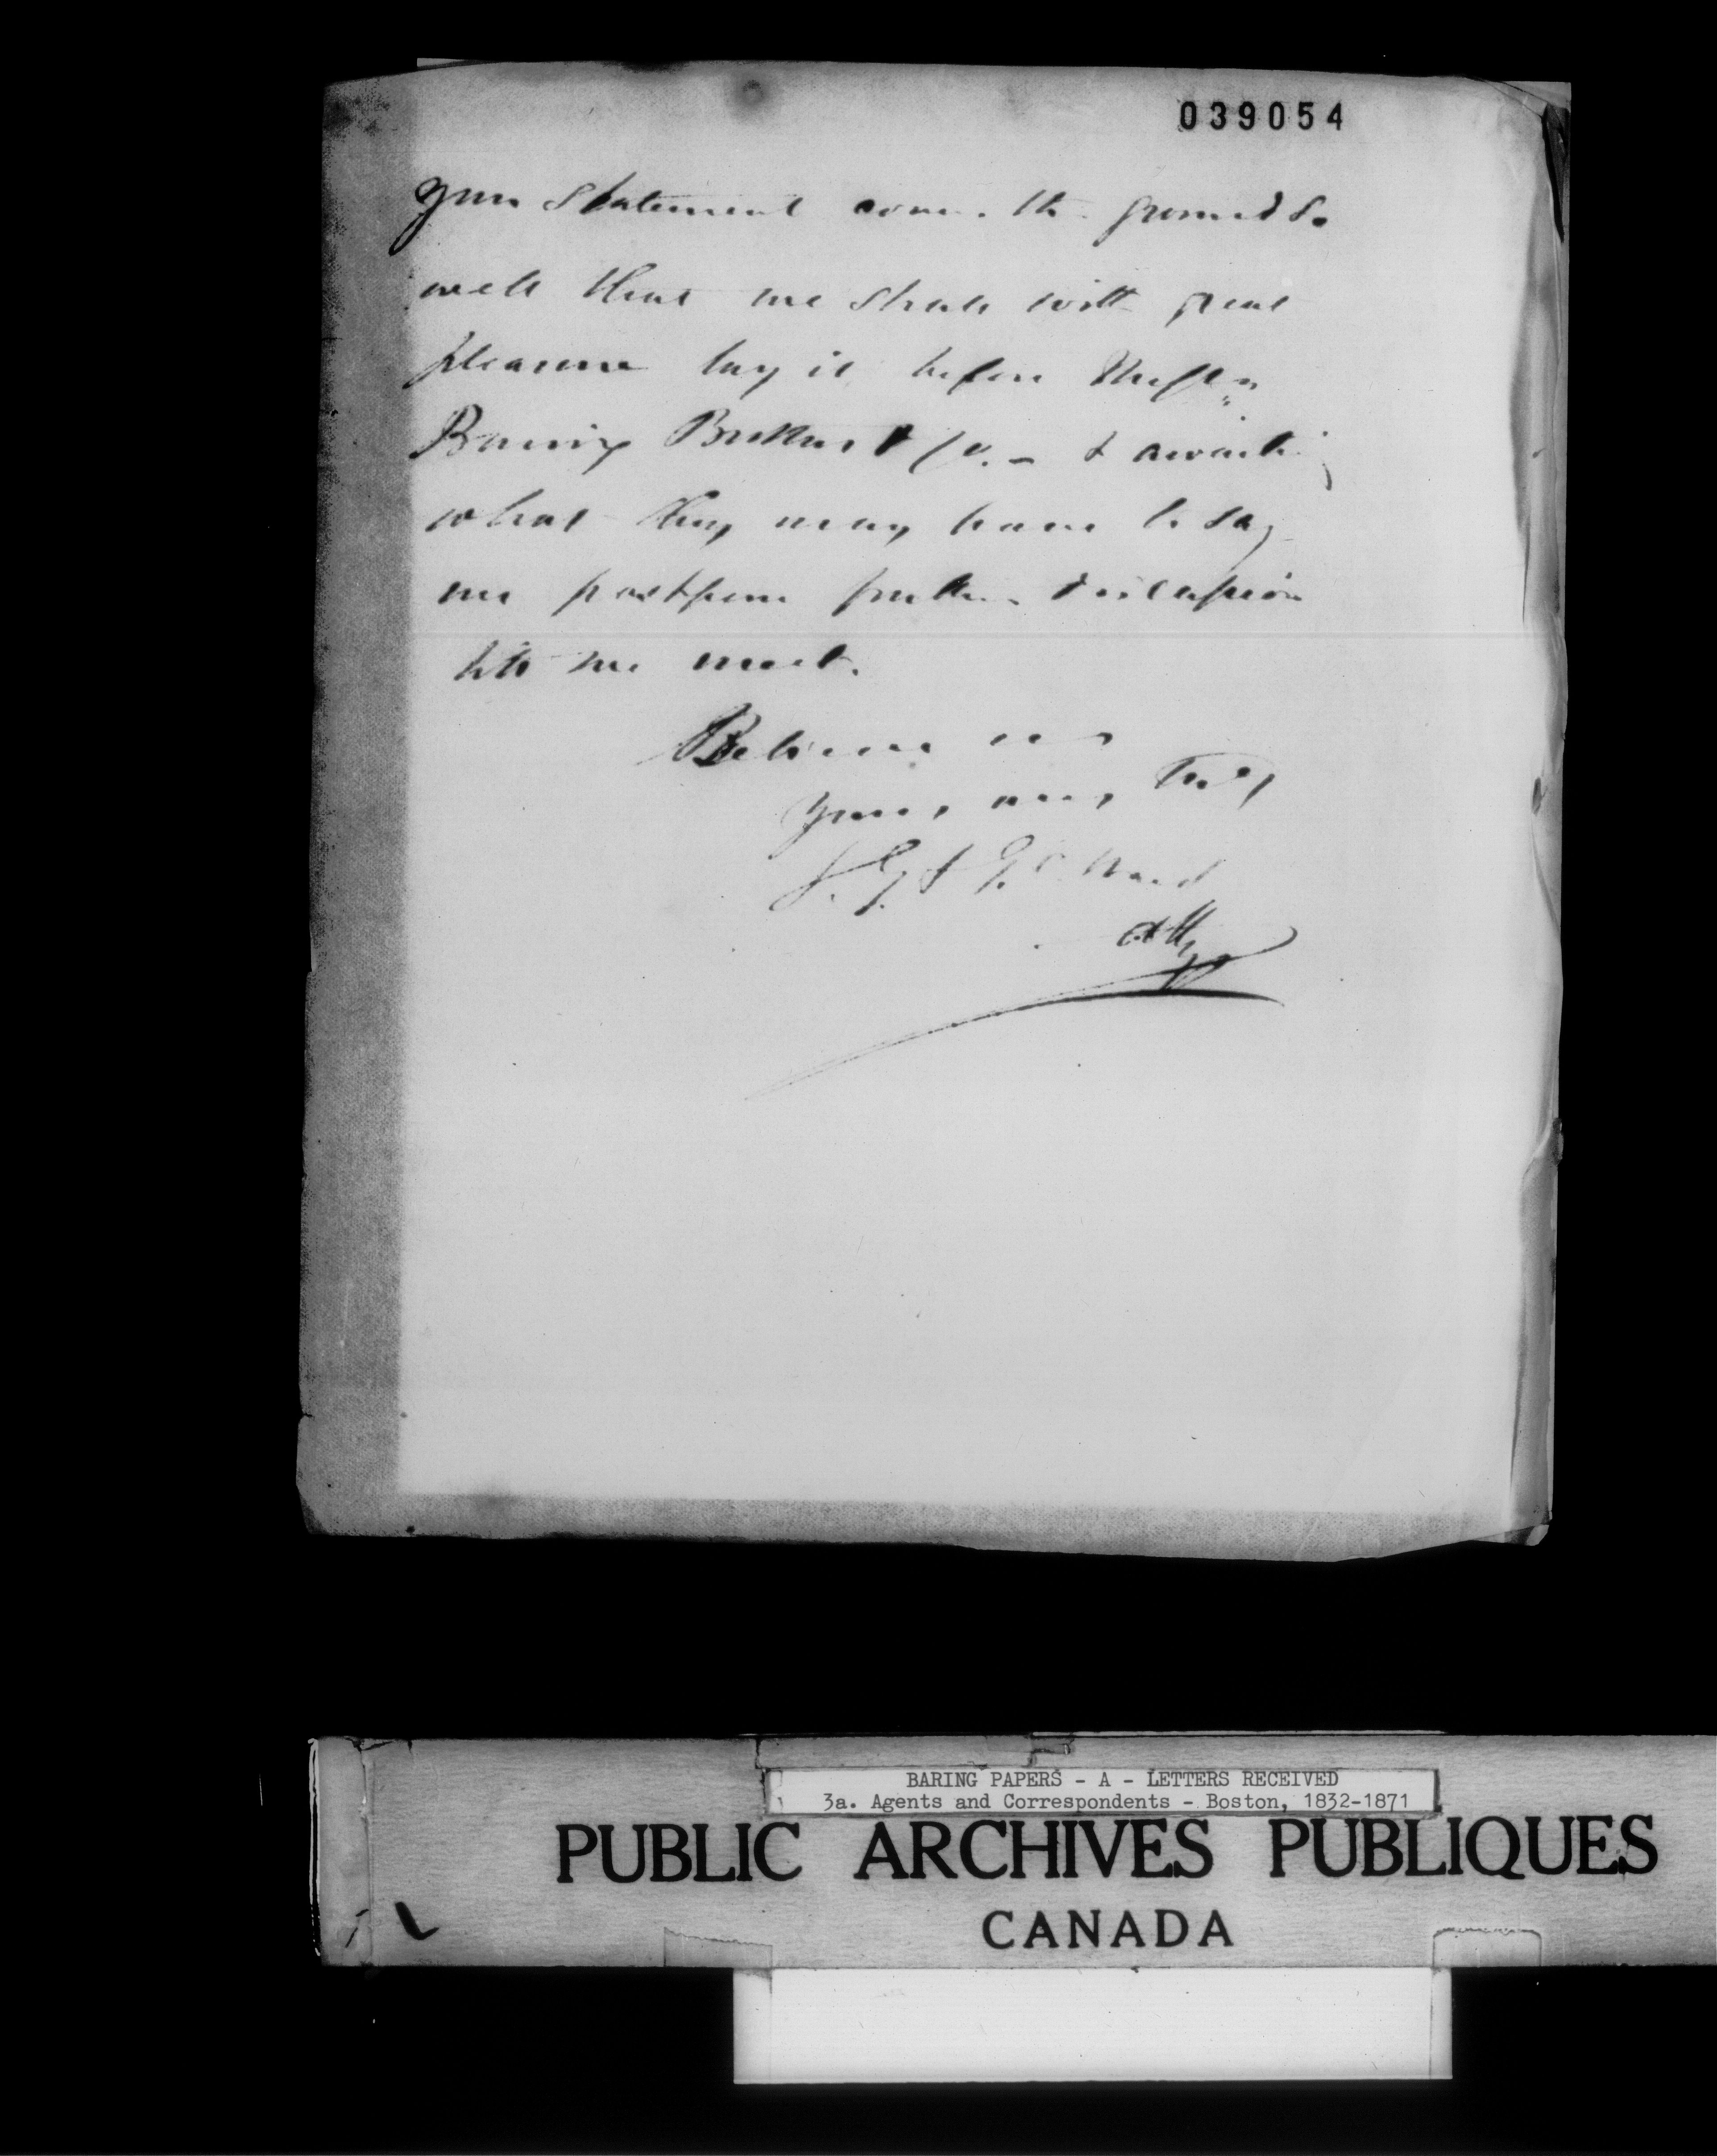 039054
your statement covers the ground so
well that we shall with great
pleasure lay it before Messrs
Baring Brothers & Co. - & awaiting
what they may have to say
we postpone further discussion
till we meet.
Believe us
Yours very truly
S. G. & G. C. Ward
atty
BARING PAPERS - A - LETTERS RECEIVED
3a. Agents and Correspondents - Boston, 1832-1871
PUBLIC ARCHIVES PUBLIQUES
CANADA